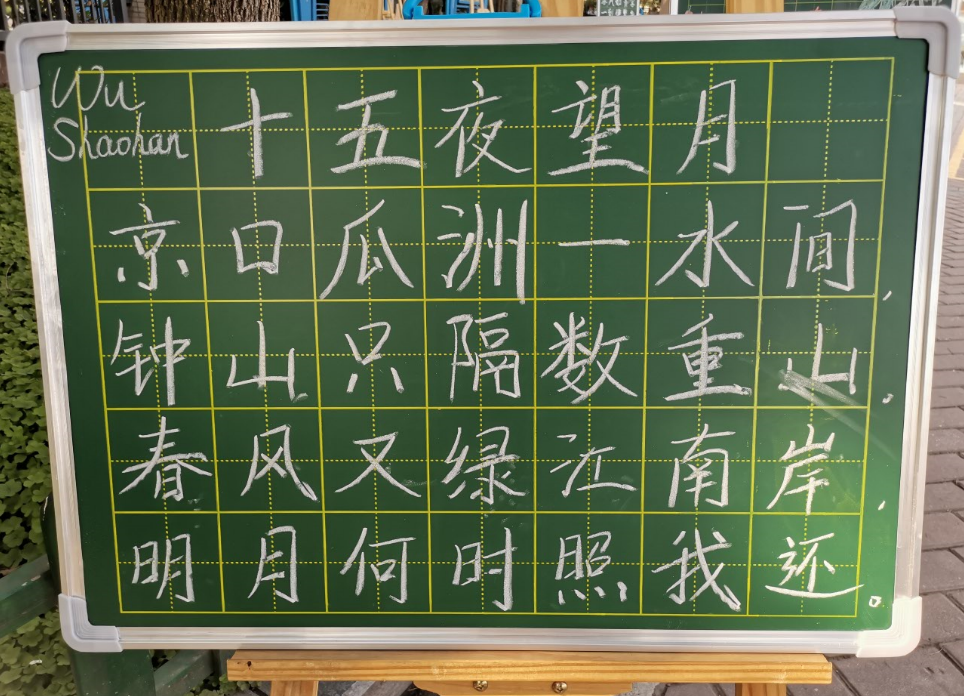 Wu
Shaohan
十五夜望月
京口瓜洲一水间,
钟山只隔数重山,
春风又绿江南岸,
明月何时照我还。